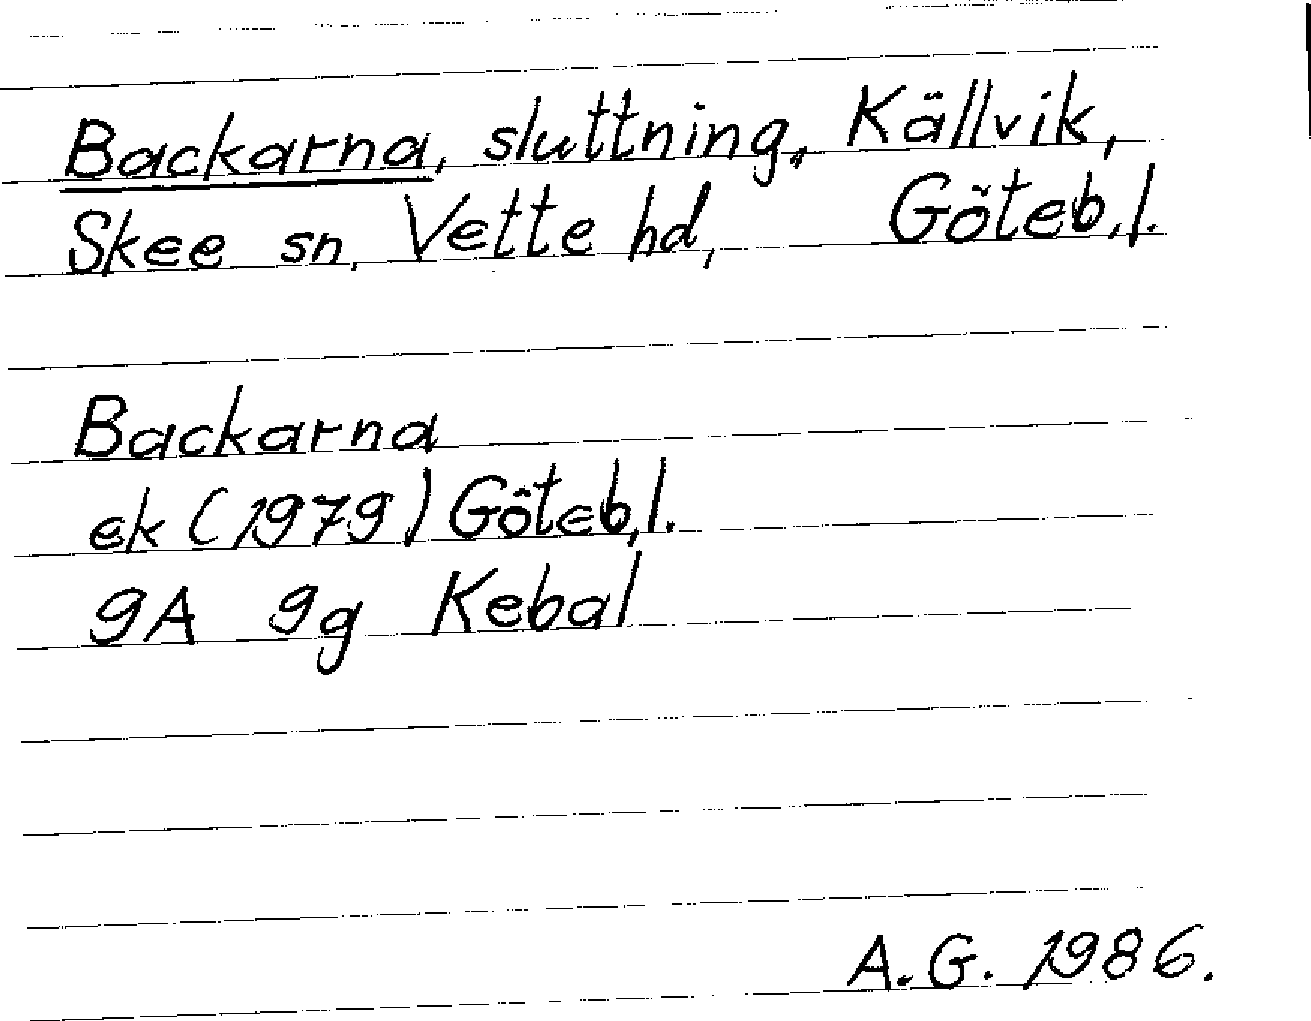 Backarna, sluttning, Källvik,
Skee sn, Vette hd, Göteb.l.
Backarna
ek (1979) Göteb.l.
9A 9g Kebal
A.G. 1986.